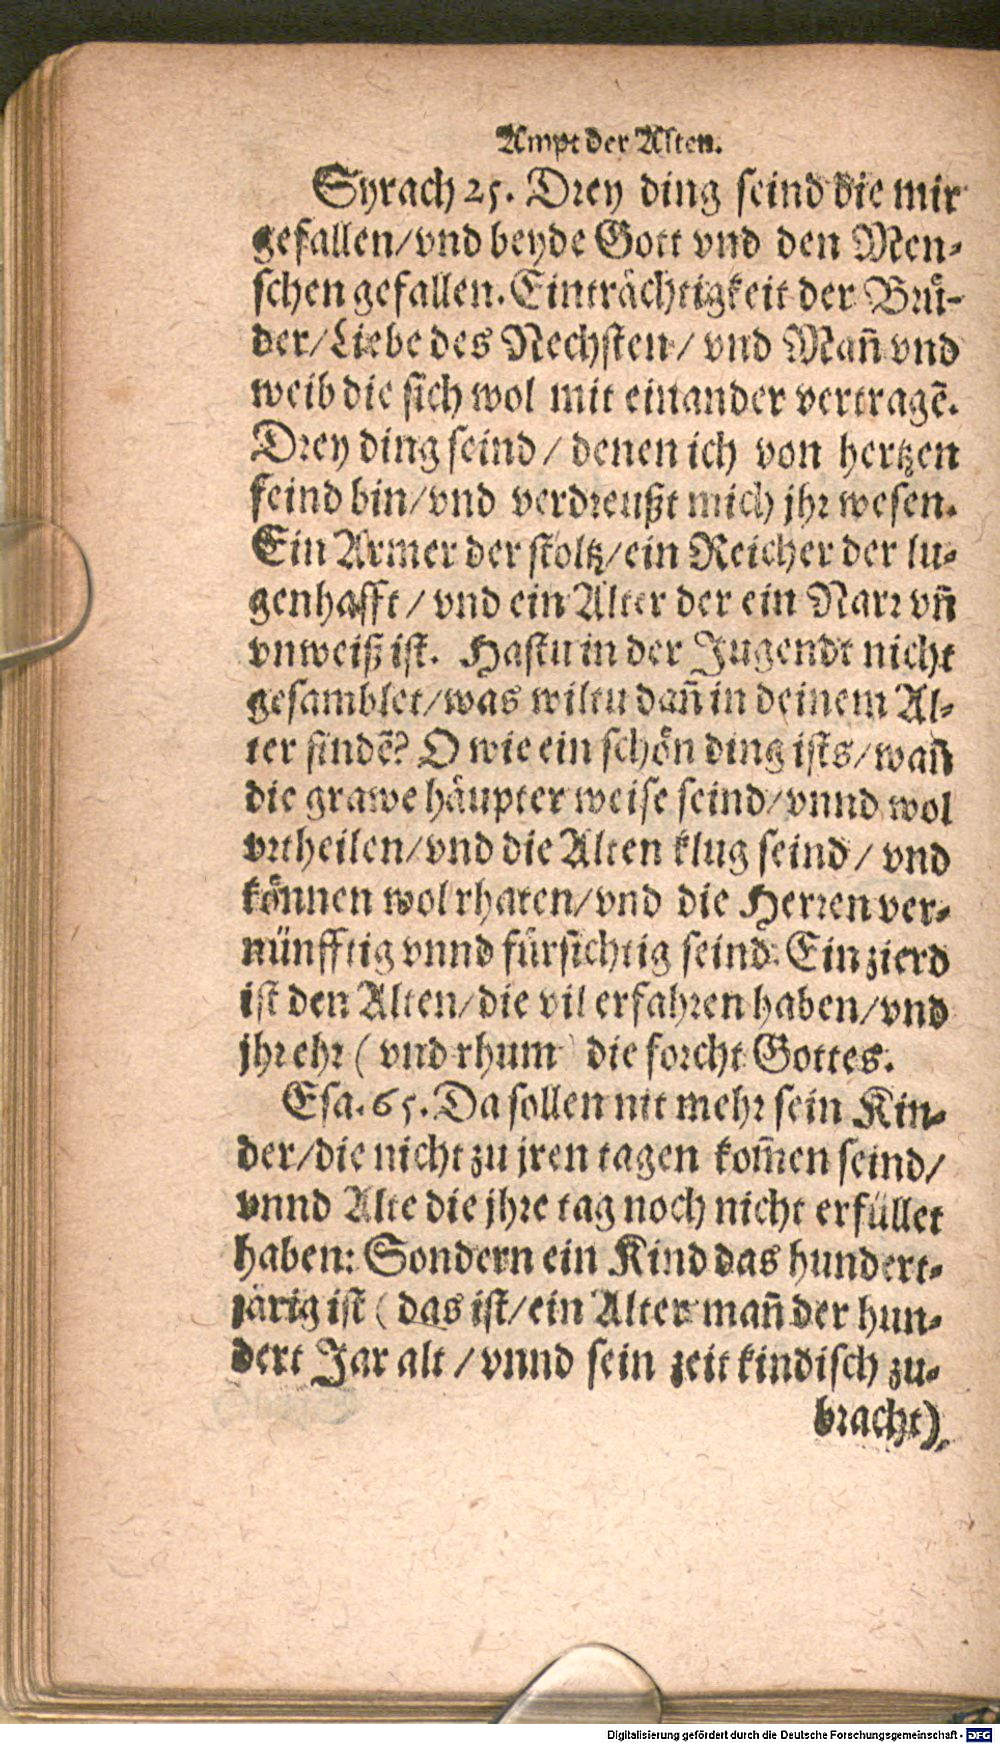 Ampt der Alten.
Syrach 25. Drey ding seind die mir
gefallen/vnd beyde Gott vnd den Men-
schen gefallen. Einträchtigkeit der Brü-
der/Liebe des Nechsten/ vnd Mañ vnd
weib die sich wol mit einander vertragẽ.
Drey ding seind/ denen ich von hertzen
feind bin/vnd verdreußt mich jhr wesen.
Ein Armer der stoltz/ein Reicher der lu-
genhafft/ vnd ein Alter der ein Narr vñ
vnweiß ist. Hastu in der Jugendt nicht
gesamblet/was wiltu dañ in deinem Al-
ter findẽ? O wie ein schön ding ists/wañ
die grawe häupter weise seind/vnnd wol
vrtheilen/vnd die Alten klug seind/ vnd
können wol rhaten/vnd die Herren ver-
nünfftig vnnd fürsichtig seind. Ein zierd
ist den Alten/die vil erfahren haben/vnd
jhr ehr ( vnd rhum ) die forcht Gottes.
Esa. 65. Da sollen nit mehr sein Kin-
der/die nicht zu jren tagen kom̃en seind/
vnnd Alte die jhre tag noch nicht erfüllet
haben: Sondern ein Kind das hundert-
järig ist ( das ist/ein Alter mañ der hun-
dert Jar alt/ vnnd sein zeit kindisch zu-
bracht)
Digitalisierung gefördert durch die Deutsche Forschungsgemeinschaft - DFG